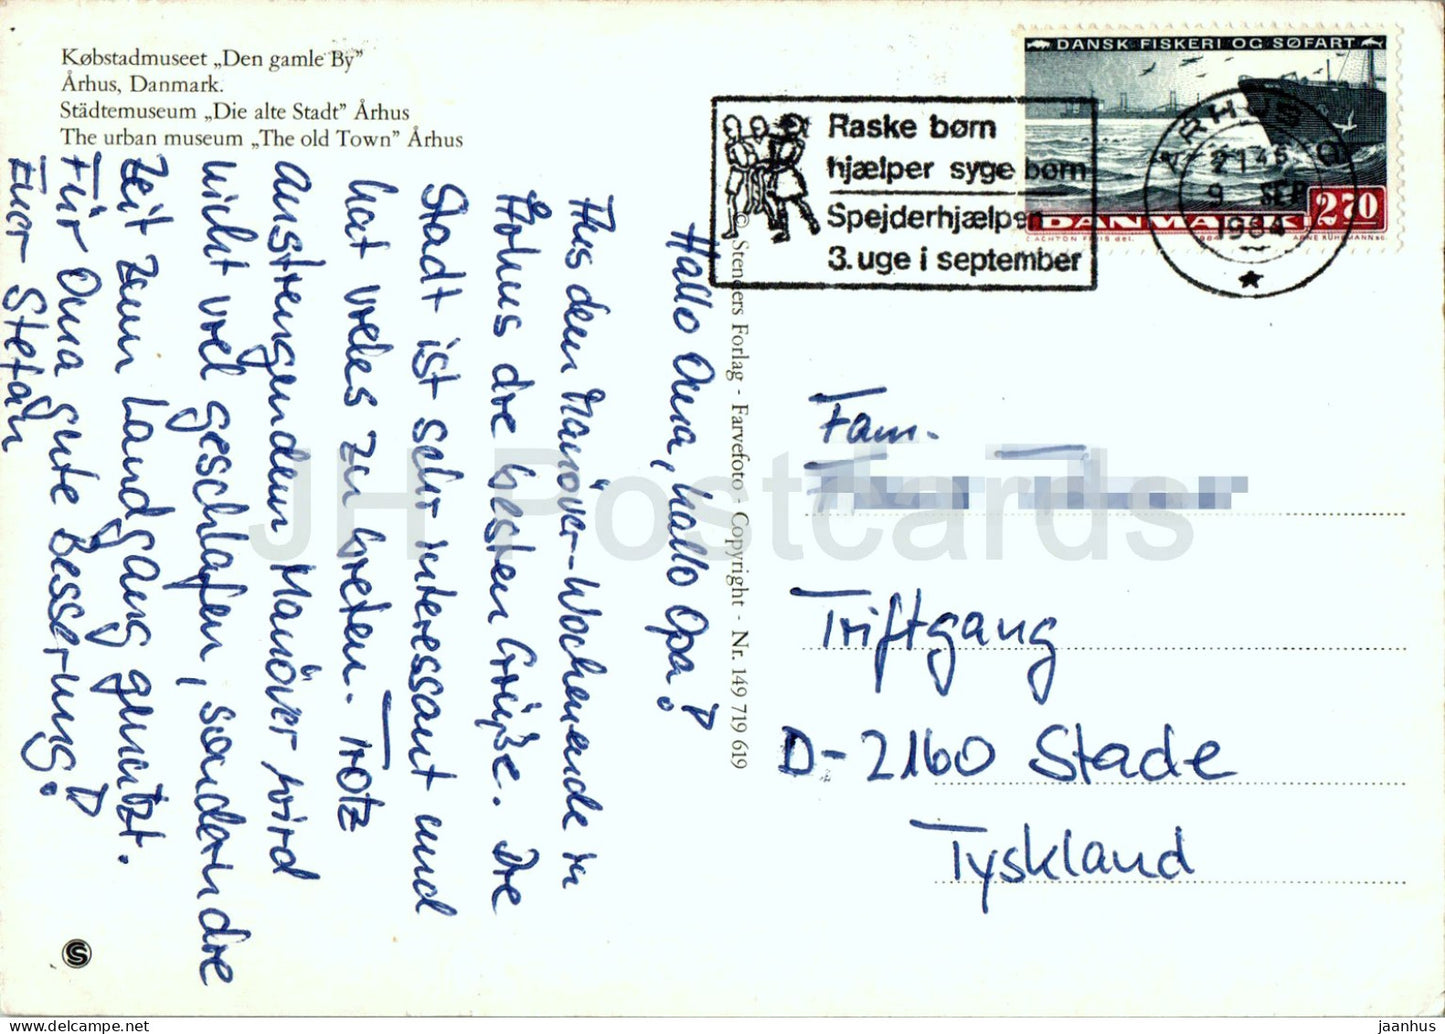 Købstadmuseet „Den gamle By”
Århus, Danmark.
Städtemuseum „Die alte Stadt” Århus
The urban museum „The old Town” Århus
Raske børn
hjælper syge børn
Spejderhjælpen
3. uge i september
DANSK FISKERI OG SØFART
DANMARK 2.70
ÅRHUS C
21 45
9 SEP
1984
Hallo Oma, hallo Opa!
Aus dem Manöver-Wochenende in
Århus die besten Grüße. Die
Stadt ist sehr interessant und
hat vieles zu bieten. Trotz
anstrengendem Manöver wird
nicht viel geschlafen, sondern die
Zeit zum Landgang genutzt.
Für Oma gute Besserung!
Euer Stefan
© Stenders Forlag - Farvefoto - Copyright - Nr. 149 719 619
Fam.
Triftgang
D-2160 Stade
Tyskland
JH Postcards
www.delcampe.net
jaanhus